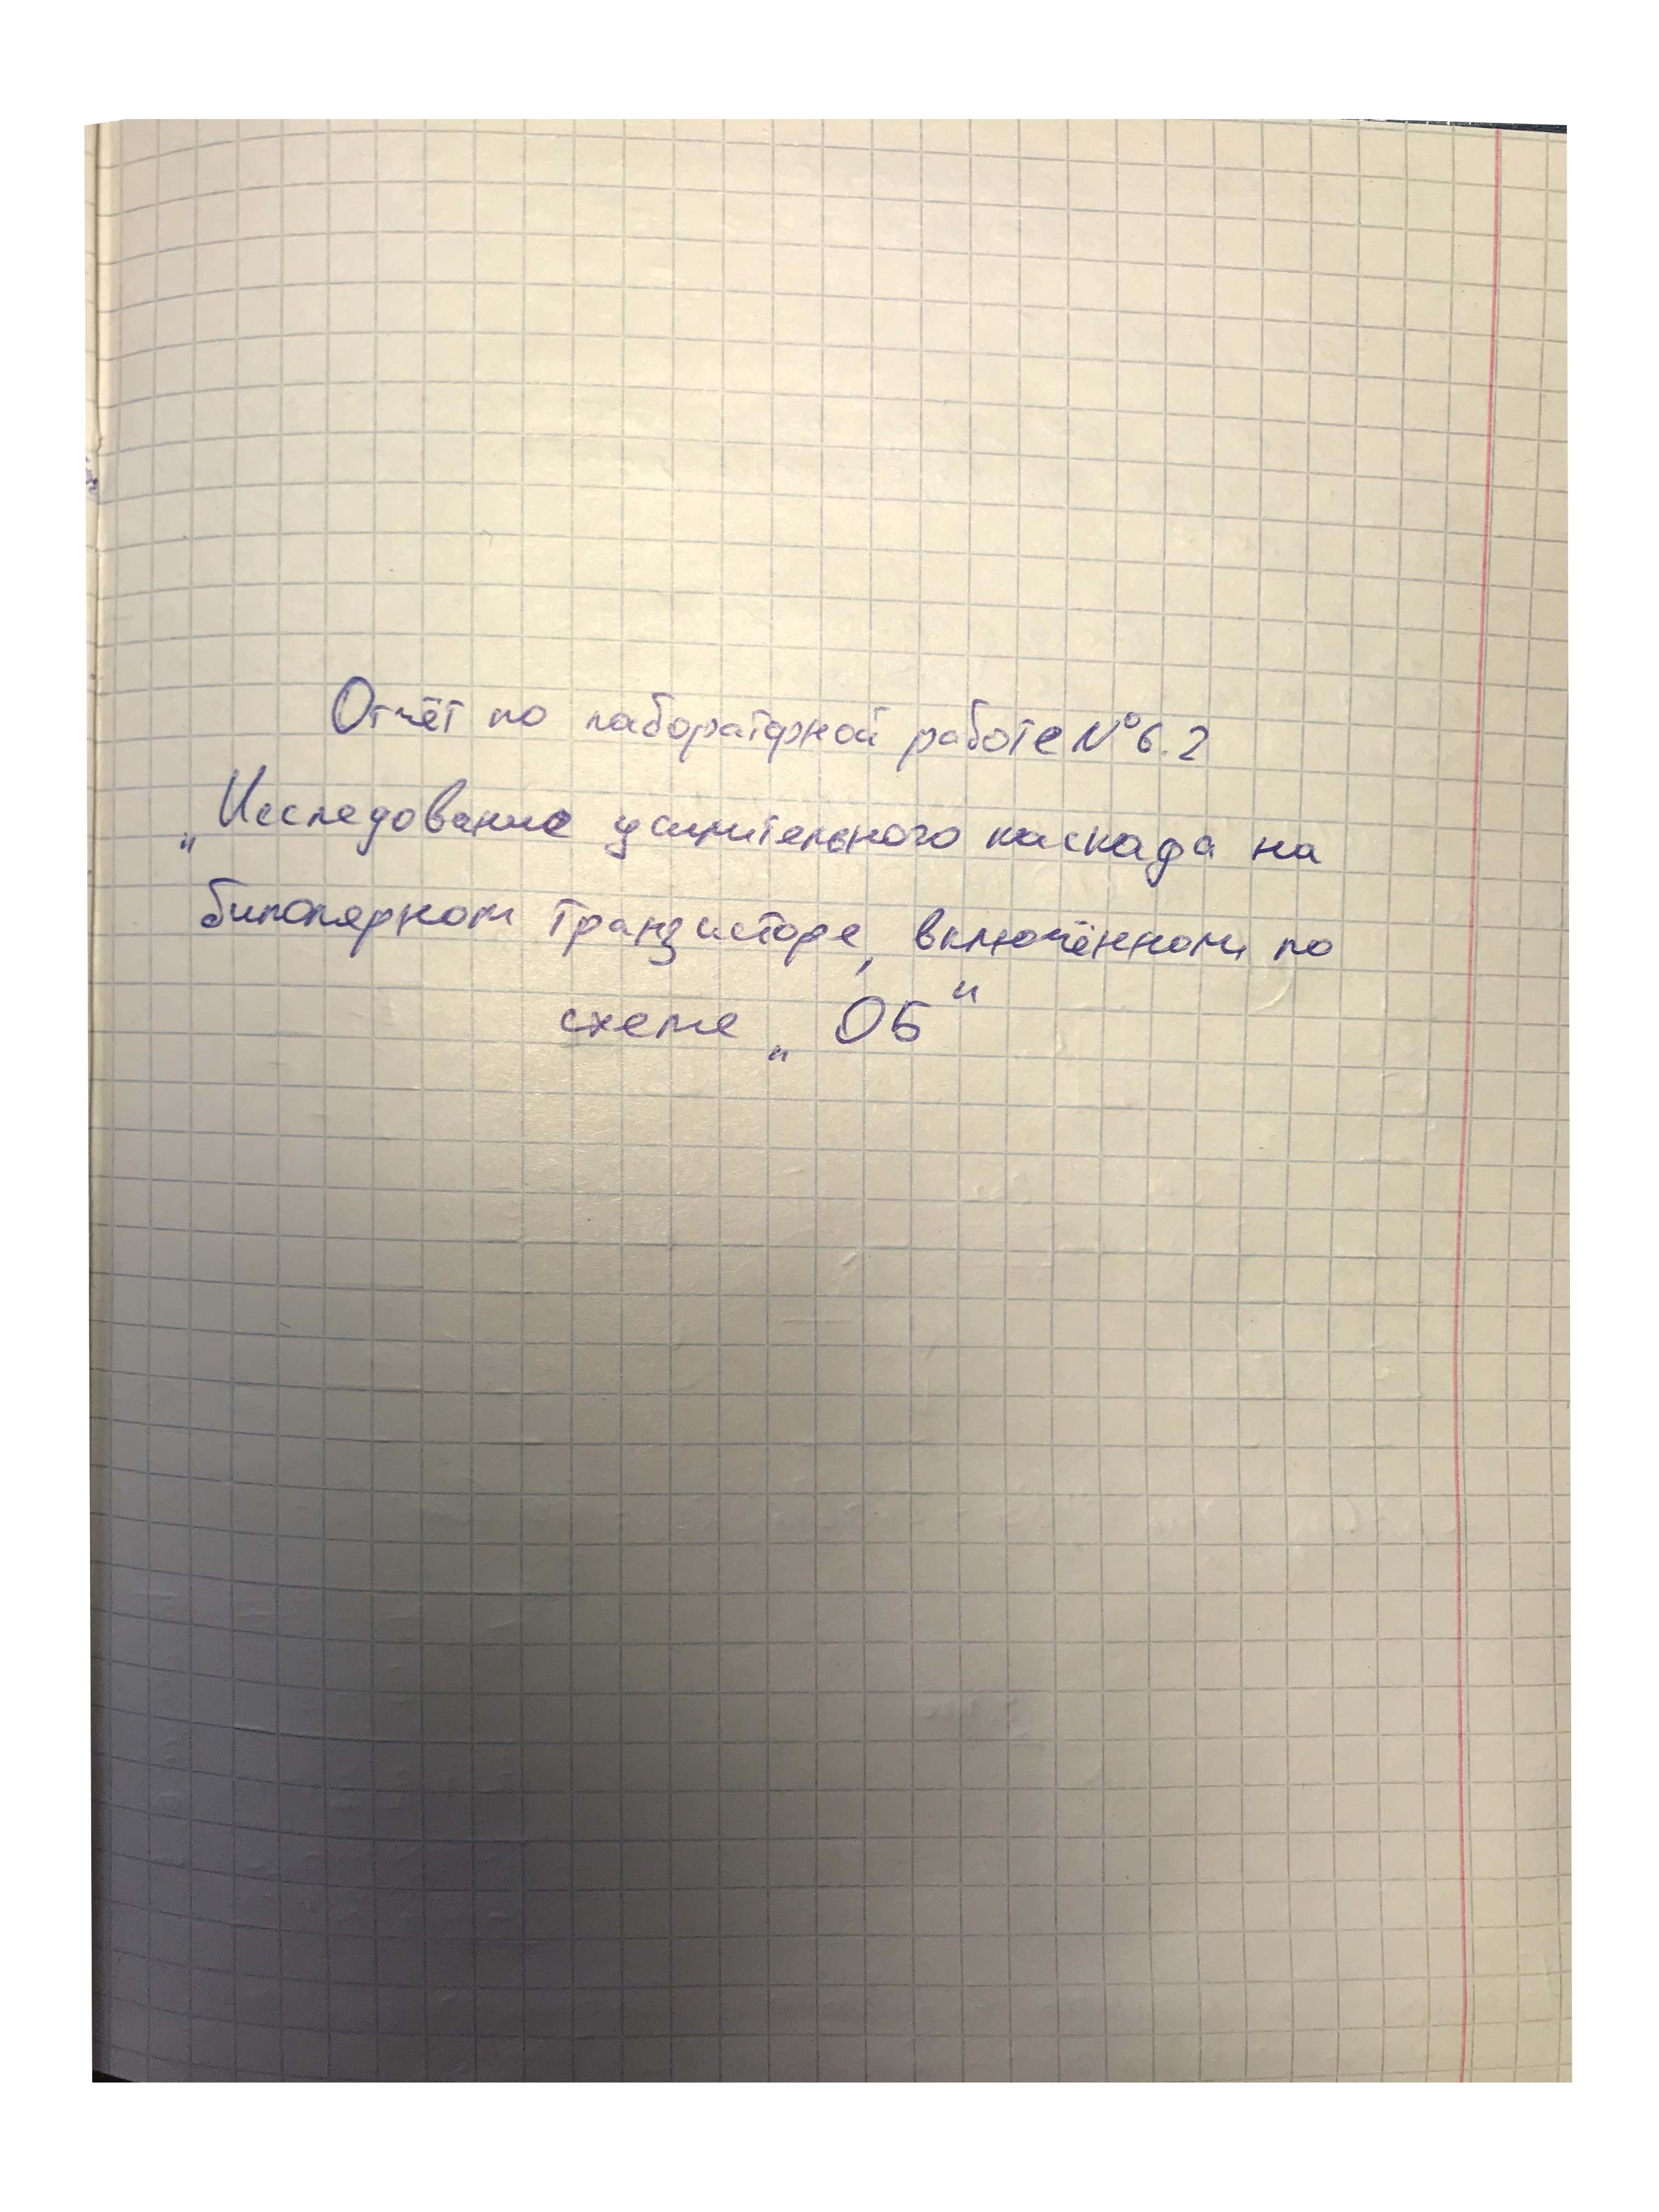 Отчёт по лабораторной работе №6.2
„Исследование усилительного каскада на
биполярном транзисторе, включённом по
схеме „ОБ“